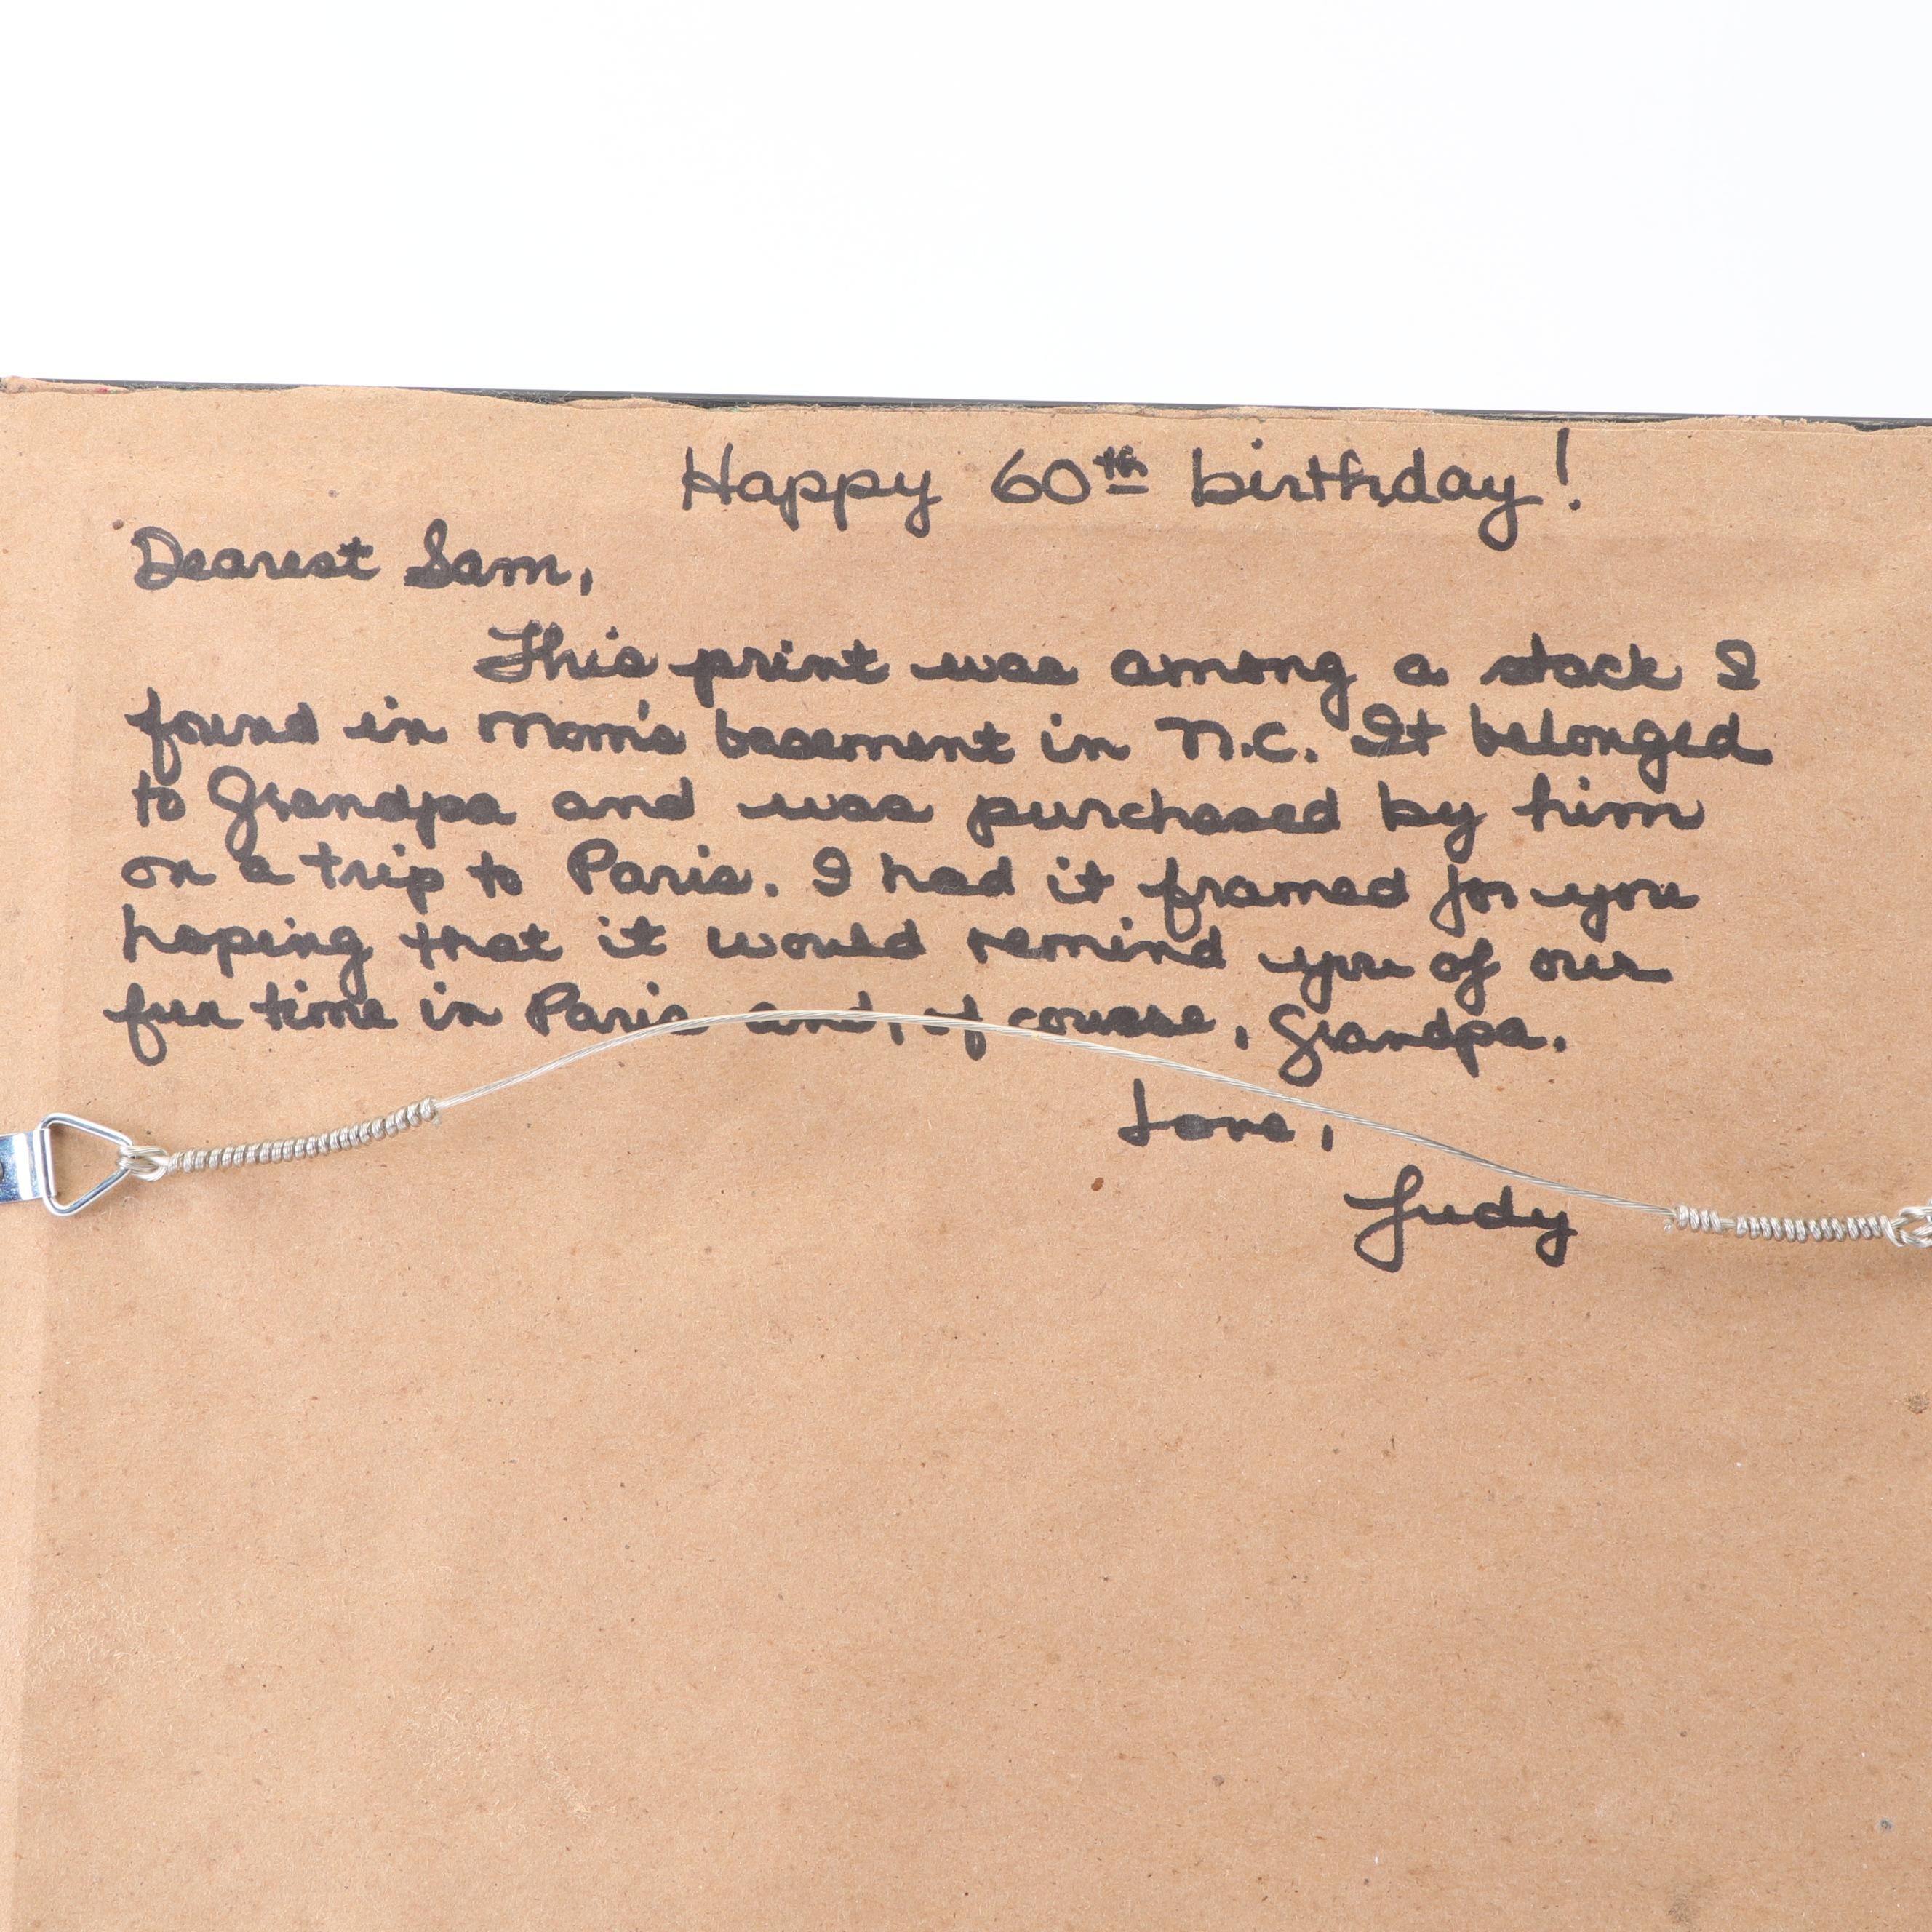 Happy 60th birthday!
Dearest Sam,
This print was among a stack I
found in Mom's basement in N.C. It belonged
to Grandpa and was purchased by him
on a trip to Paris. I had it framed for you
hoping that it would remind you of our
fun time in Paris and, of course, Grandpa.
Love,
Judy